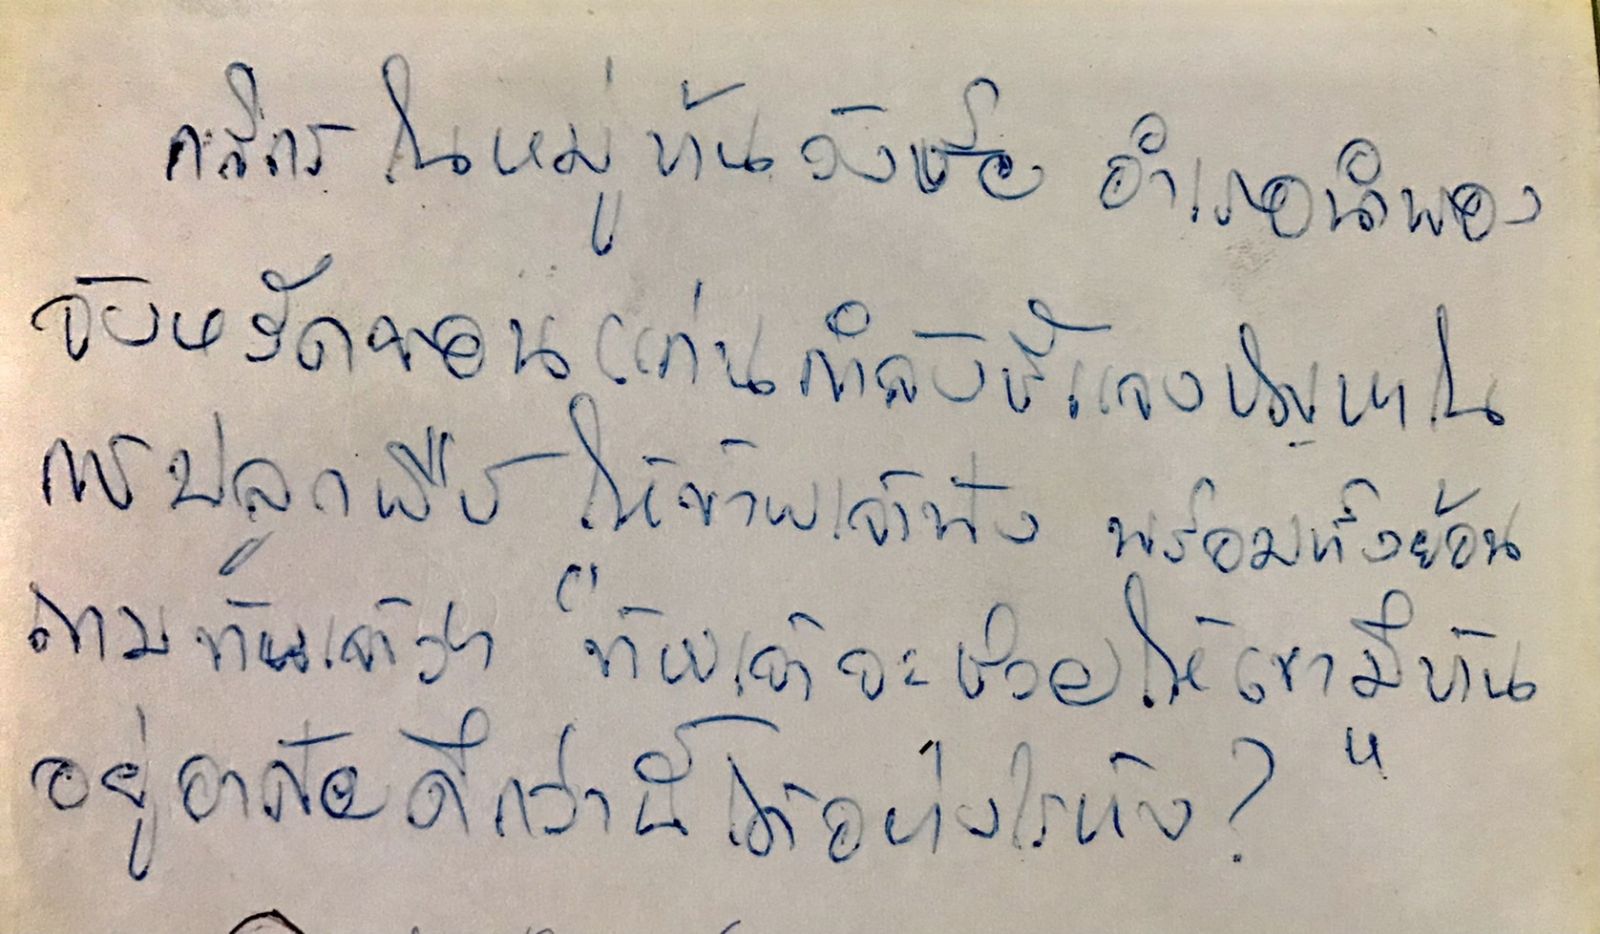 กสิกรในหมู่บ้านวังชัย อำเภอน้ำพอง
จังหวัดขอนแก่นกำลังชี้แจงปัญหาใน
การปลูกพืช ให้ข้าพเจ้าฟัง พร้อมทั้งย้อน
ถามข้าพเจ้าว่า "ข้าพเจ้าจะช่วยให้เขามีบ้าน
อยู่อาศัยดีกว่านี้ได้อย่างไรบ้าง?"